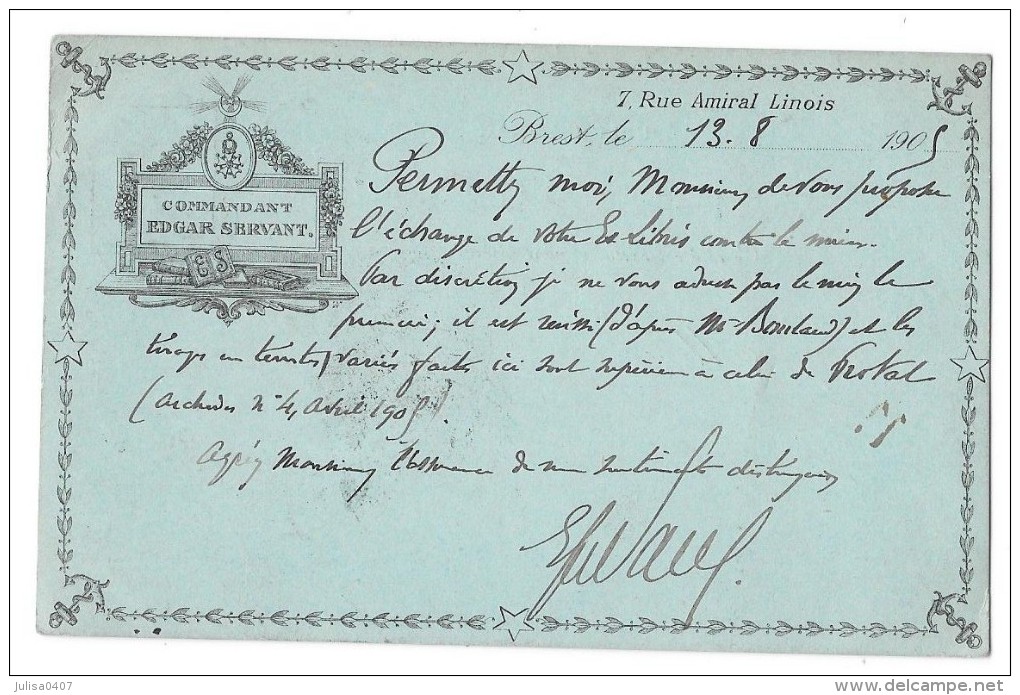 7, Rue Amiral Linois
Brest, le 13.8 1905
COMMANDANT
EDGAR SERVANT.
ES
Permettez moi, Monsieur, de vous proposer
l'échange de votre Ex Libris contre le mien.
Par discrétion je ne vous adresse pas le mien le
premier; il est réussi (d'après Mr Bouland) et les
tirages en teintes variés faites ici sont supérieurs à celui de Protat
(Archives N° 4, Avril 1905).
Agréez Monsieur l'assurance de mes sentiments distingués
EServant.
julisa0407
delcampe.net